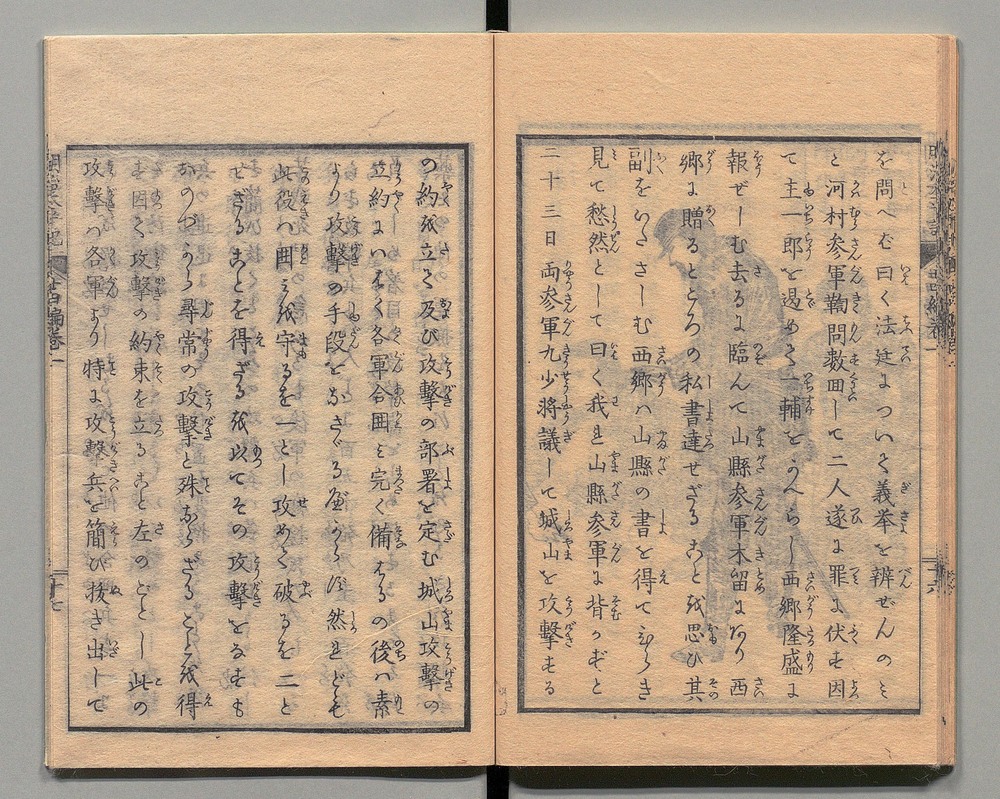 を問へば曰く法廷について義挙を辨ぜんのミ
と河村参軍鞠問数回して二人遂に罪に伏す因
て圭一郎を遏めて一輔をかへらし西郷隆盛に
報ぜしむ去るに臨んで山縣参軍木留にあり西
郷に贈るところの私書達せざることを思ひ其
副をいださしむ西郷ハ山縣の書を得てひらき
見て愁然として曰く我れ山縣参軍に背かずと
二十三日両参軍九少将議して城山を攻撃する
の約を立て及び攻撃の部署を定む城山攻撃の
立約にいはく各軍合囲を完く備はるの後ハ素
より攻撃の手段をなさゞるべからず然れども
此役ハ囲を守るを一とし攻めて破るを二と
せざることを得ざるを以てその攻撃をなすも
おのづから尋常の攻撃と殊ならざることを得
ず因て攻撃の約束を立ること左のごとし此の
攻撃ハ各軍より特に攻撃兵を簡び抜き出して
十七